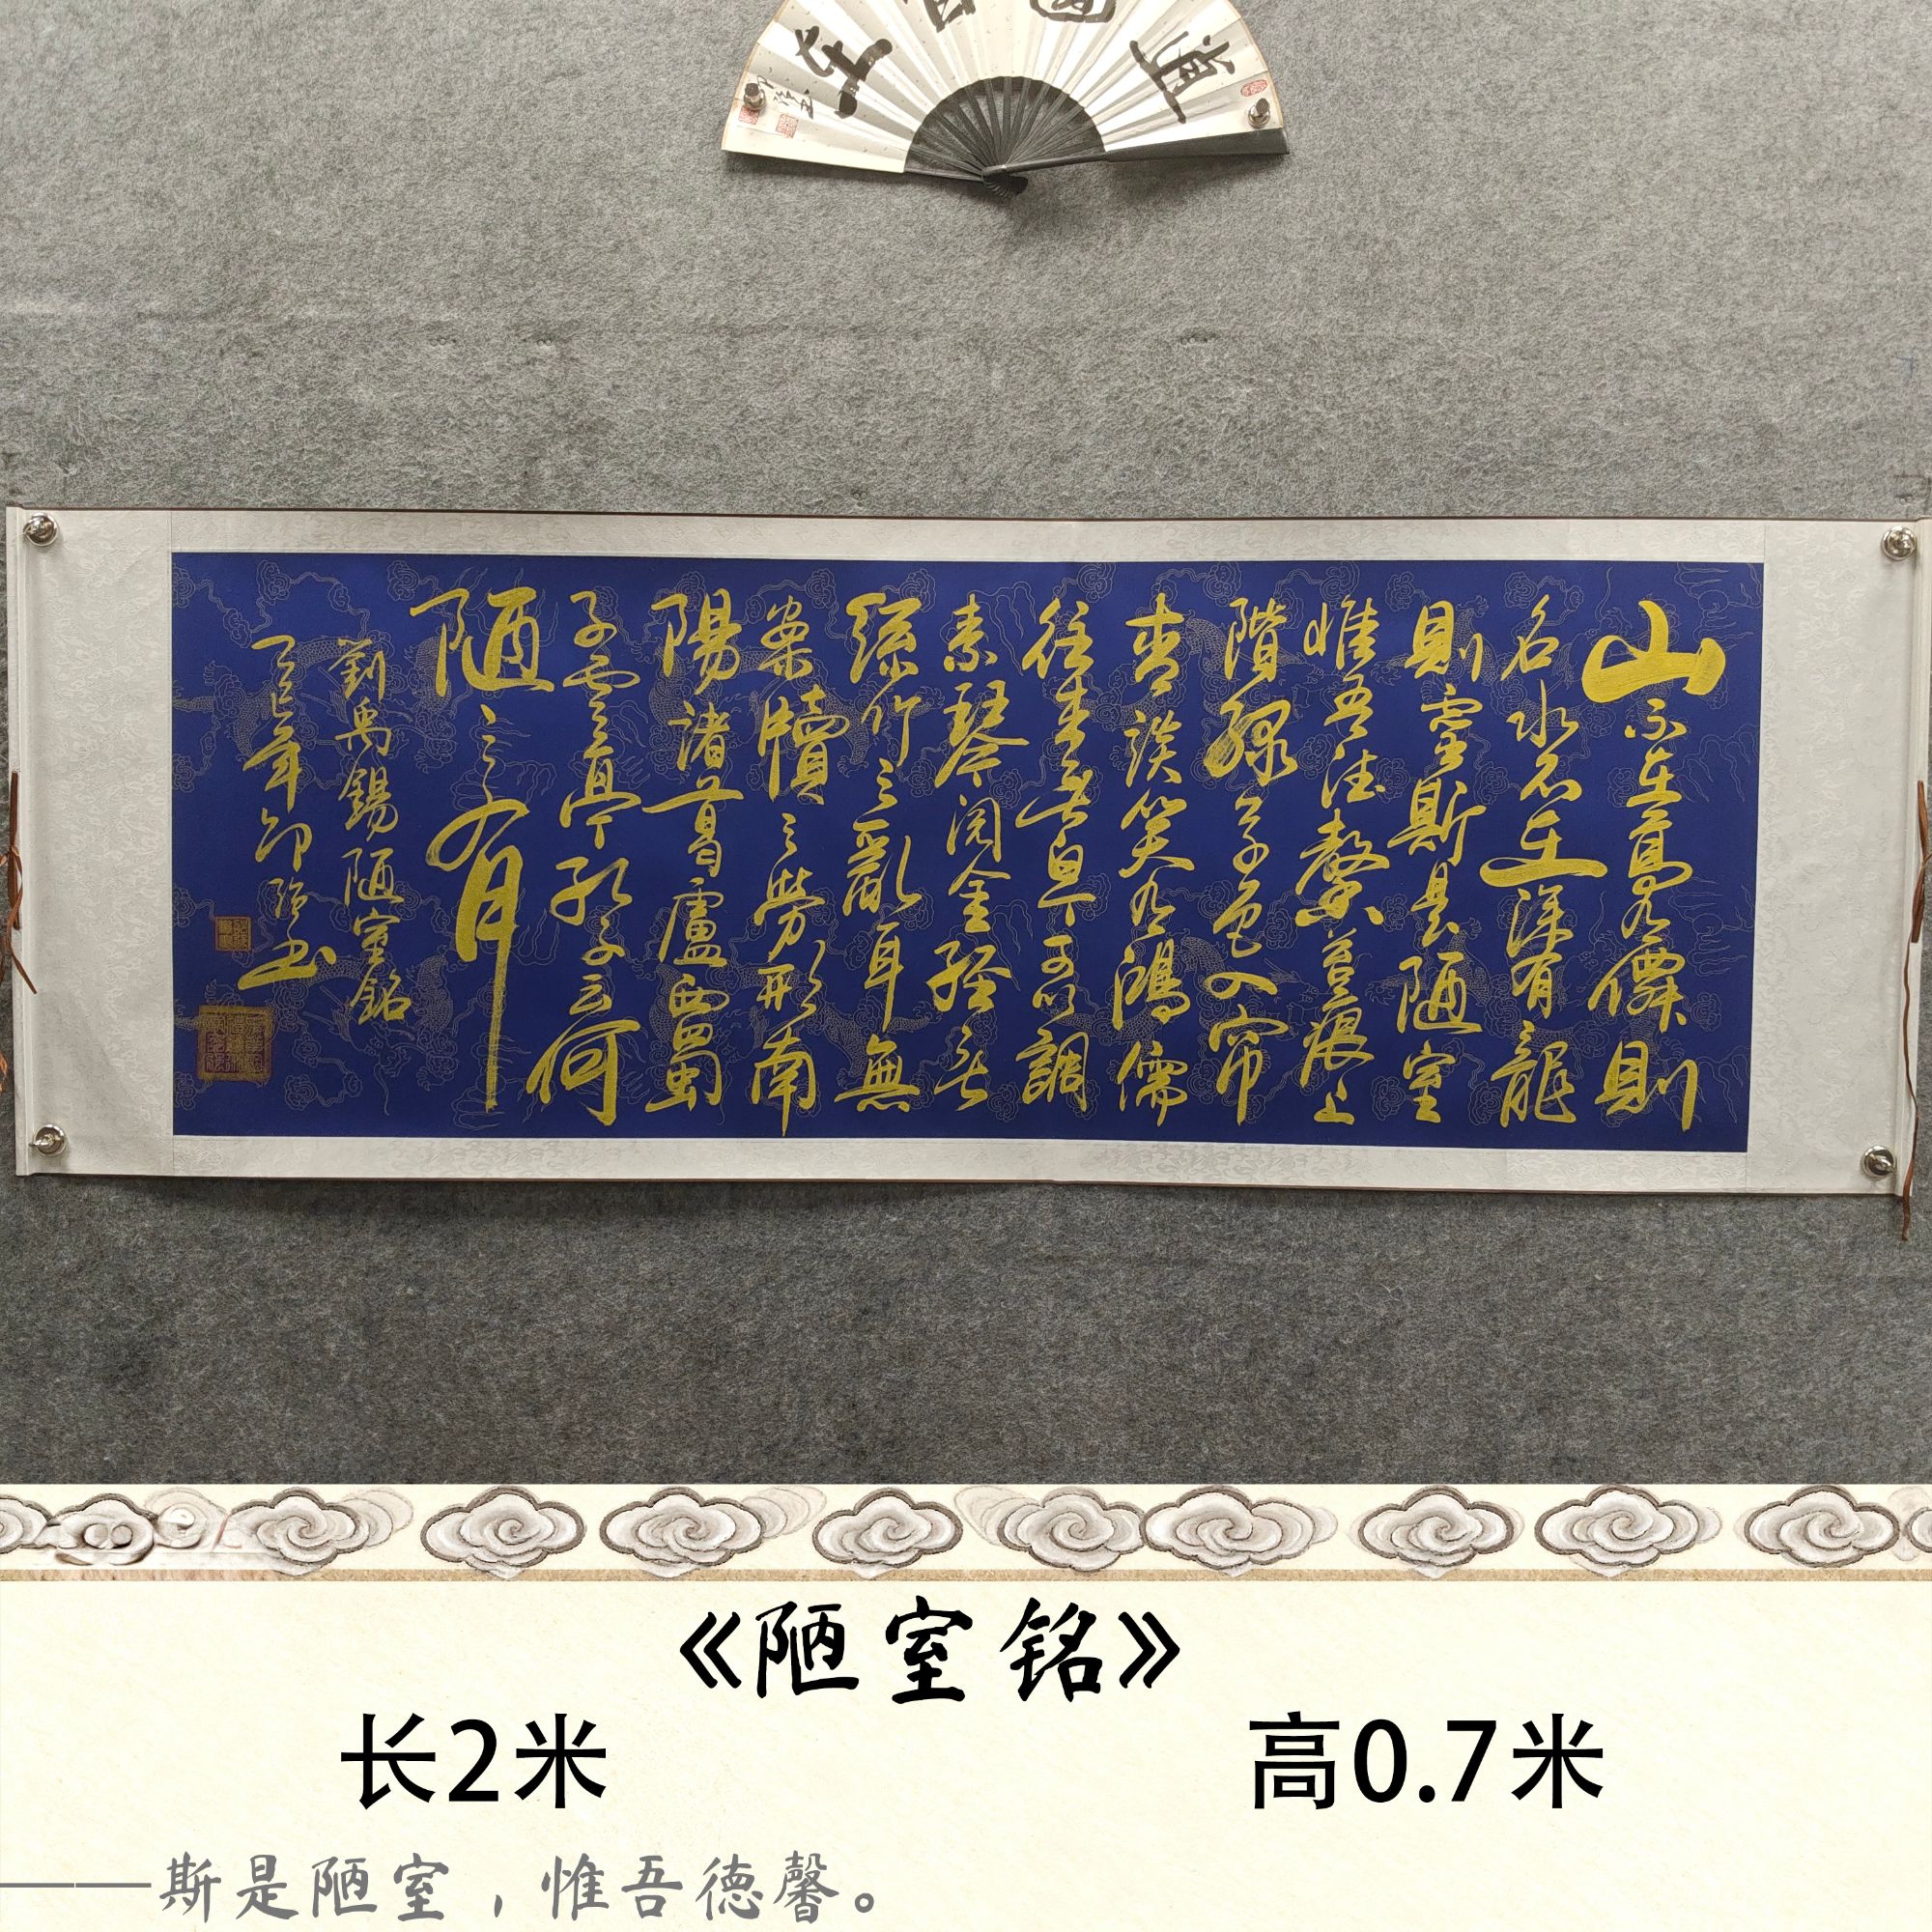 山不在高有僊則
名水不在深有龍
則靈斯是陋室
惟吾德馨苔痕上
階綠草色入帘
青談笑有鴻儒
往来無白丁可以調
素琴閱金經無
絲竹之亂耳無
案牘之勞形南
陽諸葛廬西蜀
子雲亭孔子云何
陋之有
劉禹錫陋室銘
乙巳年
《陋室铭》
长2米 高0.7米
——斯是陋室，惟吾德馨。